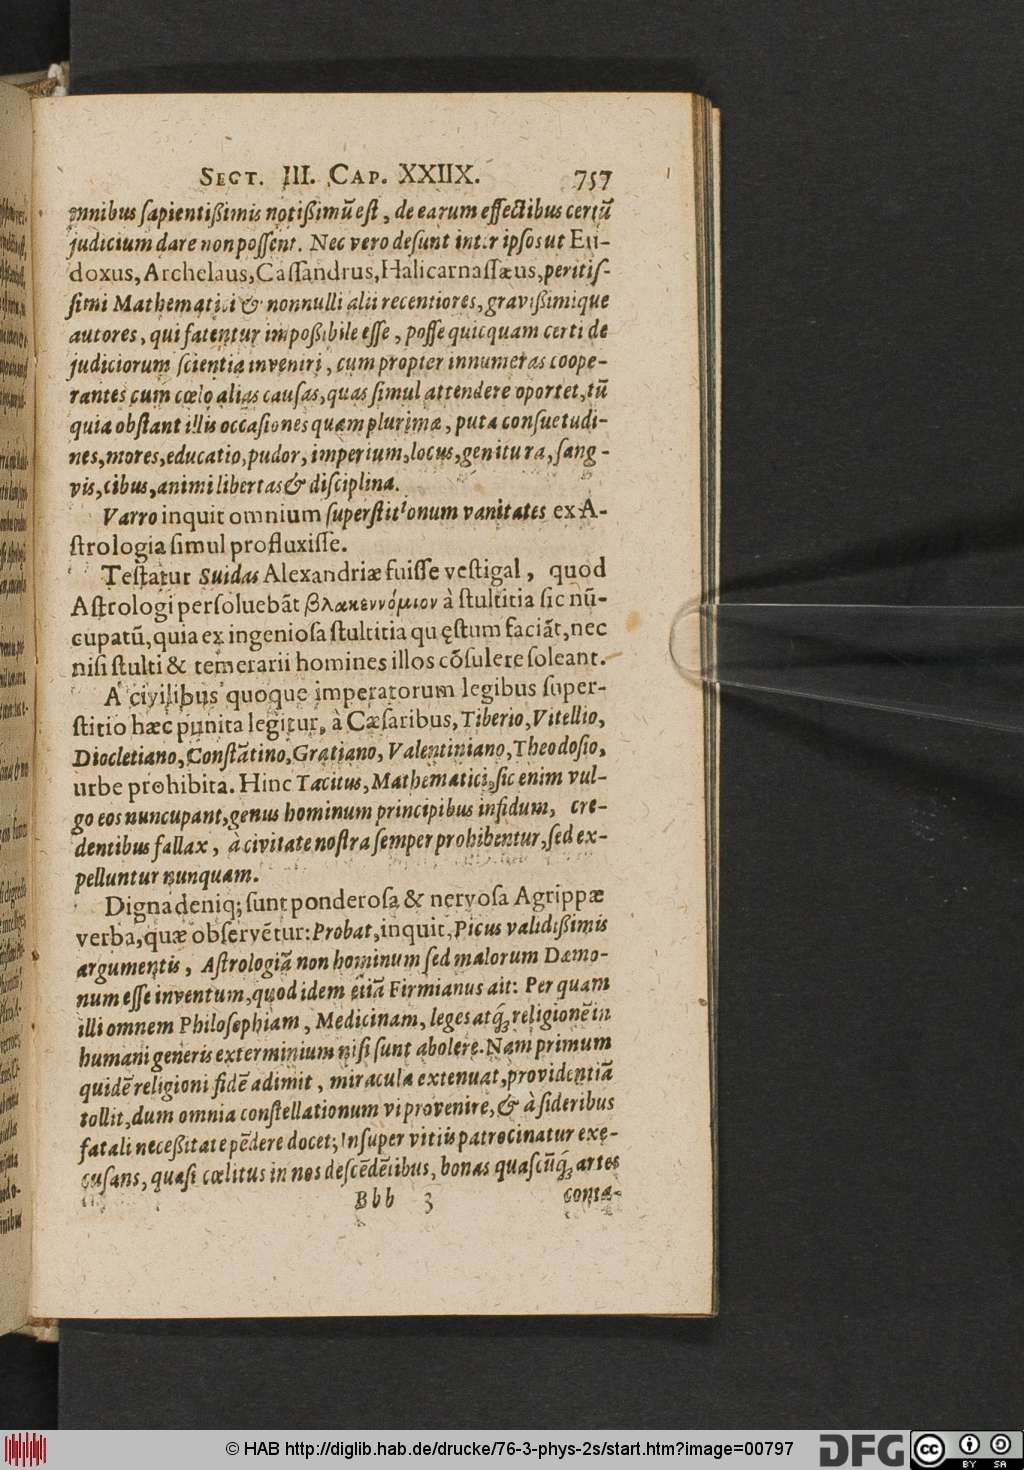 SECT. III. CAP. XXIIX. 757
omnibus sapientißimis notißimũ est, de earum effectibus certũ
judicium dare non possent. Nec vero desunt inter ipsos ut Eu-
doxus, Archelaus, Cassandrus, Halicarnassæus, peritis-
simi Mathematici & nonnulli alii recentiores, gravißimique
autores, qui fatentur impoßibile esse, posse quicquam certi de
judiciorum scientia inveniri, cum propter innumeras coope-
rantes cum cœlo alias causas, quas simul attendere oportet, tũ
quia obstant illis occasiones quam plurimæ, puta consuetudi-
nes, mores, educatio, pudor, imperium, locus, genitura, sang-
vis, cibus, animi libertas & disciplina.
Varro inquit omnium superstitionum vanitates ex A-
strologia simul profluxisse.
Testatur Suidas Alexandriæ fuisse vestigal, quod
Astrologi persoluebãt βλακεννόμιον à stultitia sic nũ-
cupatũ, quia ex ingeniosa stultitia quęstum faciãt, nec
nisi stulti & temerarii homines illos cõsulere soleant.
A civilibus quoque imperatorum legibus super-
stitio hæc punita legitur, à Cæsaribus, Tiberio, Vitellio,
Diocletiano, Constãtino, Gratiano, Valentiniano, Theodosio,
urbe prohibita. Hinc Tacitus, Mathematici, sic enim vul-
go eos nuncupant, genus hominum principibus infidum, cre-
dentibus fallax, à civitate nostra semper prohibentur, sed ex-
pelluntur nunquam.
Digna deniq; sunt ponderosa & nervosa Agrippæ
verba, quæ observẽtur: Probat, inquit, Picus validißimis
argumentis, Astrologiã non hominum sed malorum Dæmo-
num esse inventum, quod idem etiã Firmianus ait: Per quam
illi omnem Philosophiam, Medicinam, leges atq́; religionẽ in
humani generis exterminium nisi sunt abolere. Nam primum
quidẽ religioni fidẽ adimit, miracula extenuat, providentiã
tollit, dum omnia constellationum vi provenire, & à sideribus
fatali neceßitate pẽdere docet; Insuper vitiis patrocinatur exę-
cusans, quasi cœlitus in nos descẽdẽtibus, bonas quascũq́; artes
Bbb 3 conta-
© HAB http://diglib.hab.de/drucke/76-3-phys-2s/start.htm?image=00797
DFG
cc BY SA